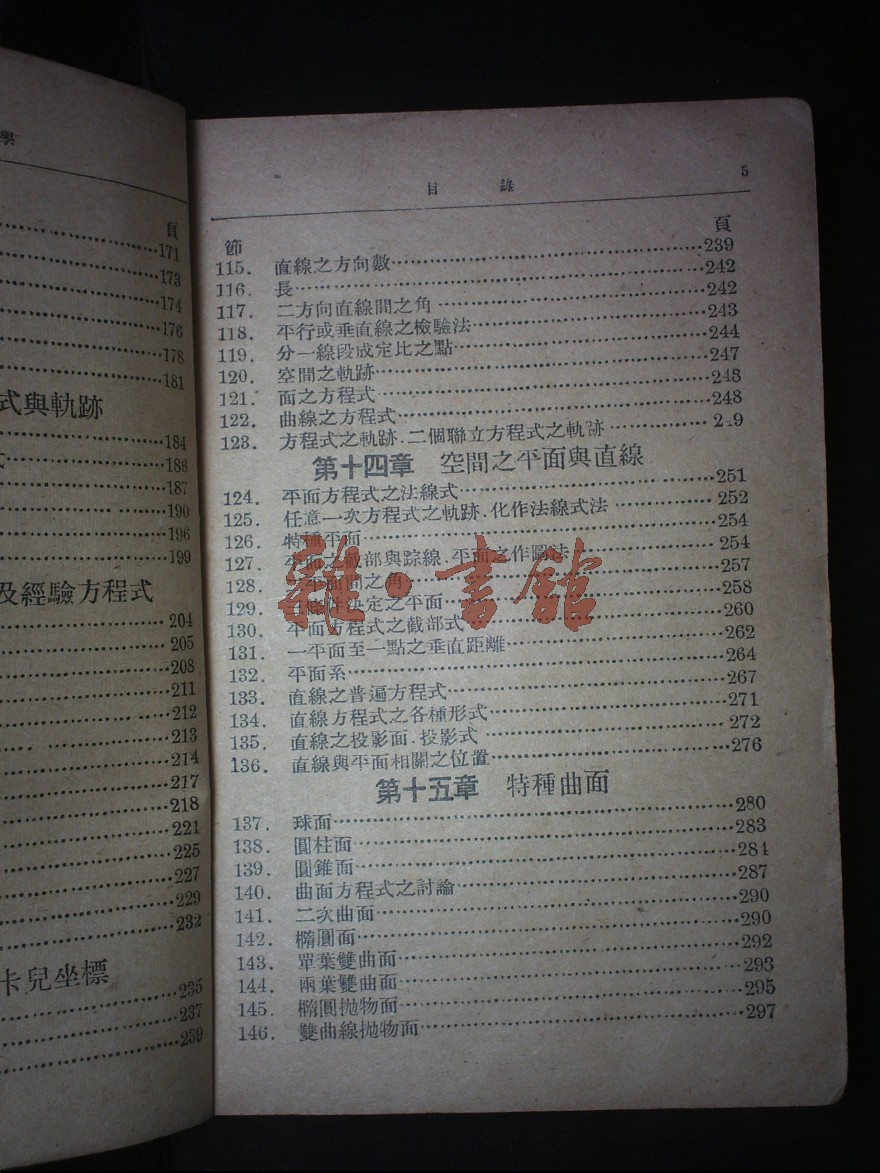 學
頁
171
173
174
176
178
181
式與軌跡
184
式
186
187
190
196
199
及經驗方程式
204
205
208
211
212
213
214
217
218
221
225
227
229
232
卡兒坐標
235
237
239
目 錄 5
節 頁
115. 直線之方向數 239
116. 長 242
117. 二方向直線間之角 242
118. 平行或垂直線之檢驗法 243
119. 分一線段成定比之點 244
120. 空間之軌跡 247
121. 面之方程式 248
122. 曲線之方程式 248
123. 方程式之軌跡.二個聯立方程式之軌跡 2 9
第十四章 空間之平面與直線
124. 平面方程式之法線式 251
125. 任意一次方程式之軌跡.化作法線式法 252
126. 特種平面 254
127. 平面之截部與踪線.平面之作圖法 254
128. 二平面間之角 257
129. 三條件決定之平面 258
130. 平面方程式之截部式 260
131. 一平面至一點之垂直距離 262
132. 平面系 264
133. 直線之普遍方程式 267
134. 直線方程式之各種形式 271
135. 直線之投影面.投影式 272
136. 直線與平面相關之位置 276
第十五章 特種曲面
137. 球面 280
138. 圓柱面 283
139. 圓錐面 284
140. 曲面方程式之討論 287
141. 二次曲面 290
142. 橢圓面 290
143. 單葉雙曲面 292
144. 兩葉雙曲面 293
145. 橢圓拋物面 295
146. 雙曲線拋物面 297
雜·書館